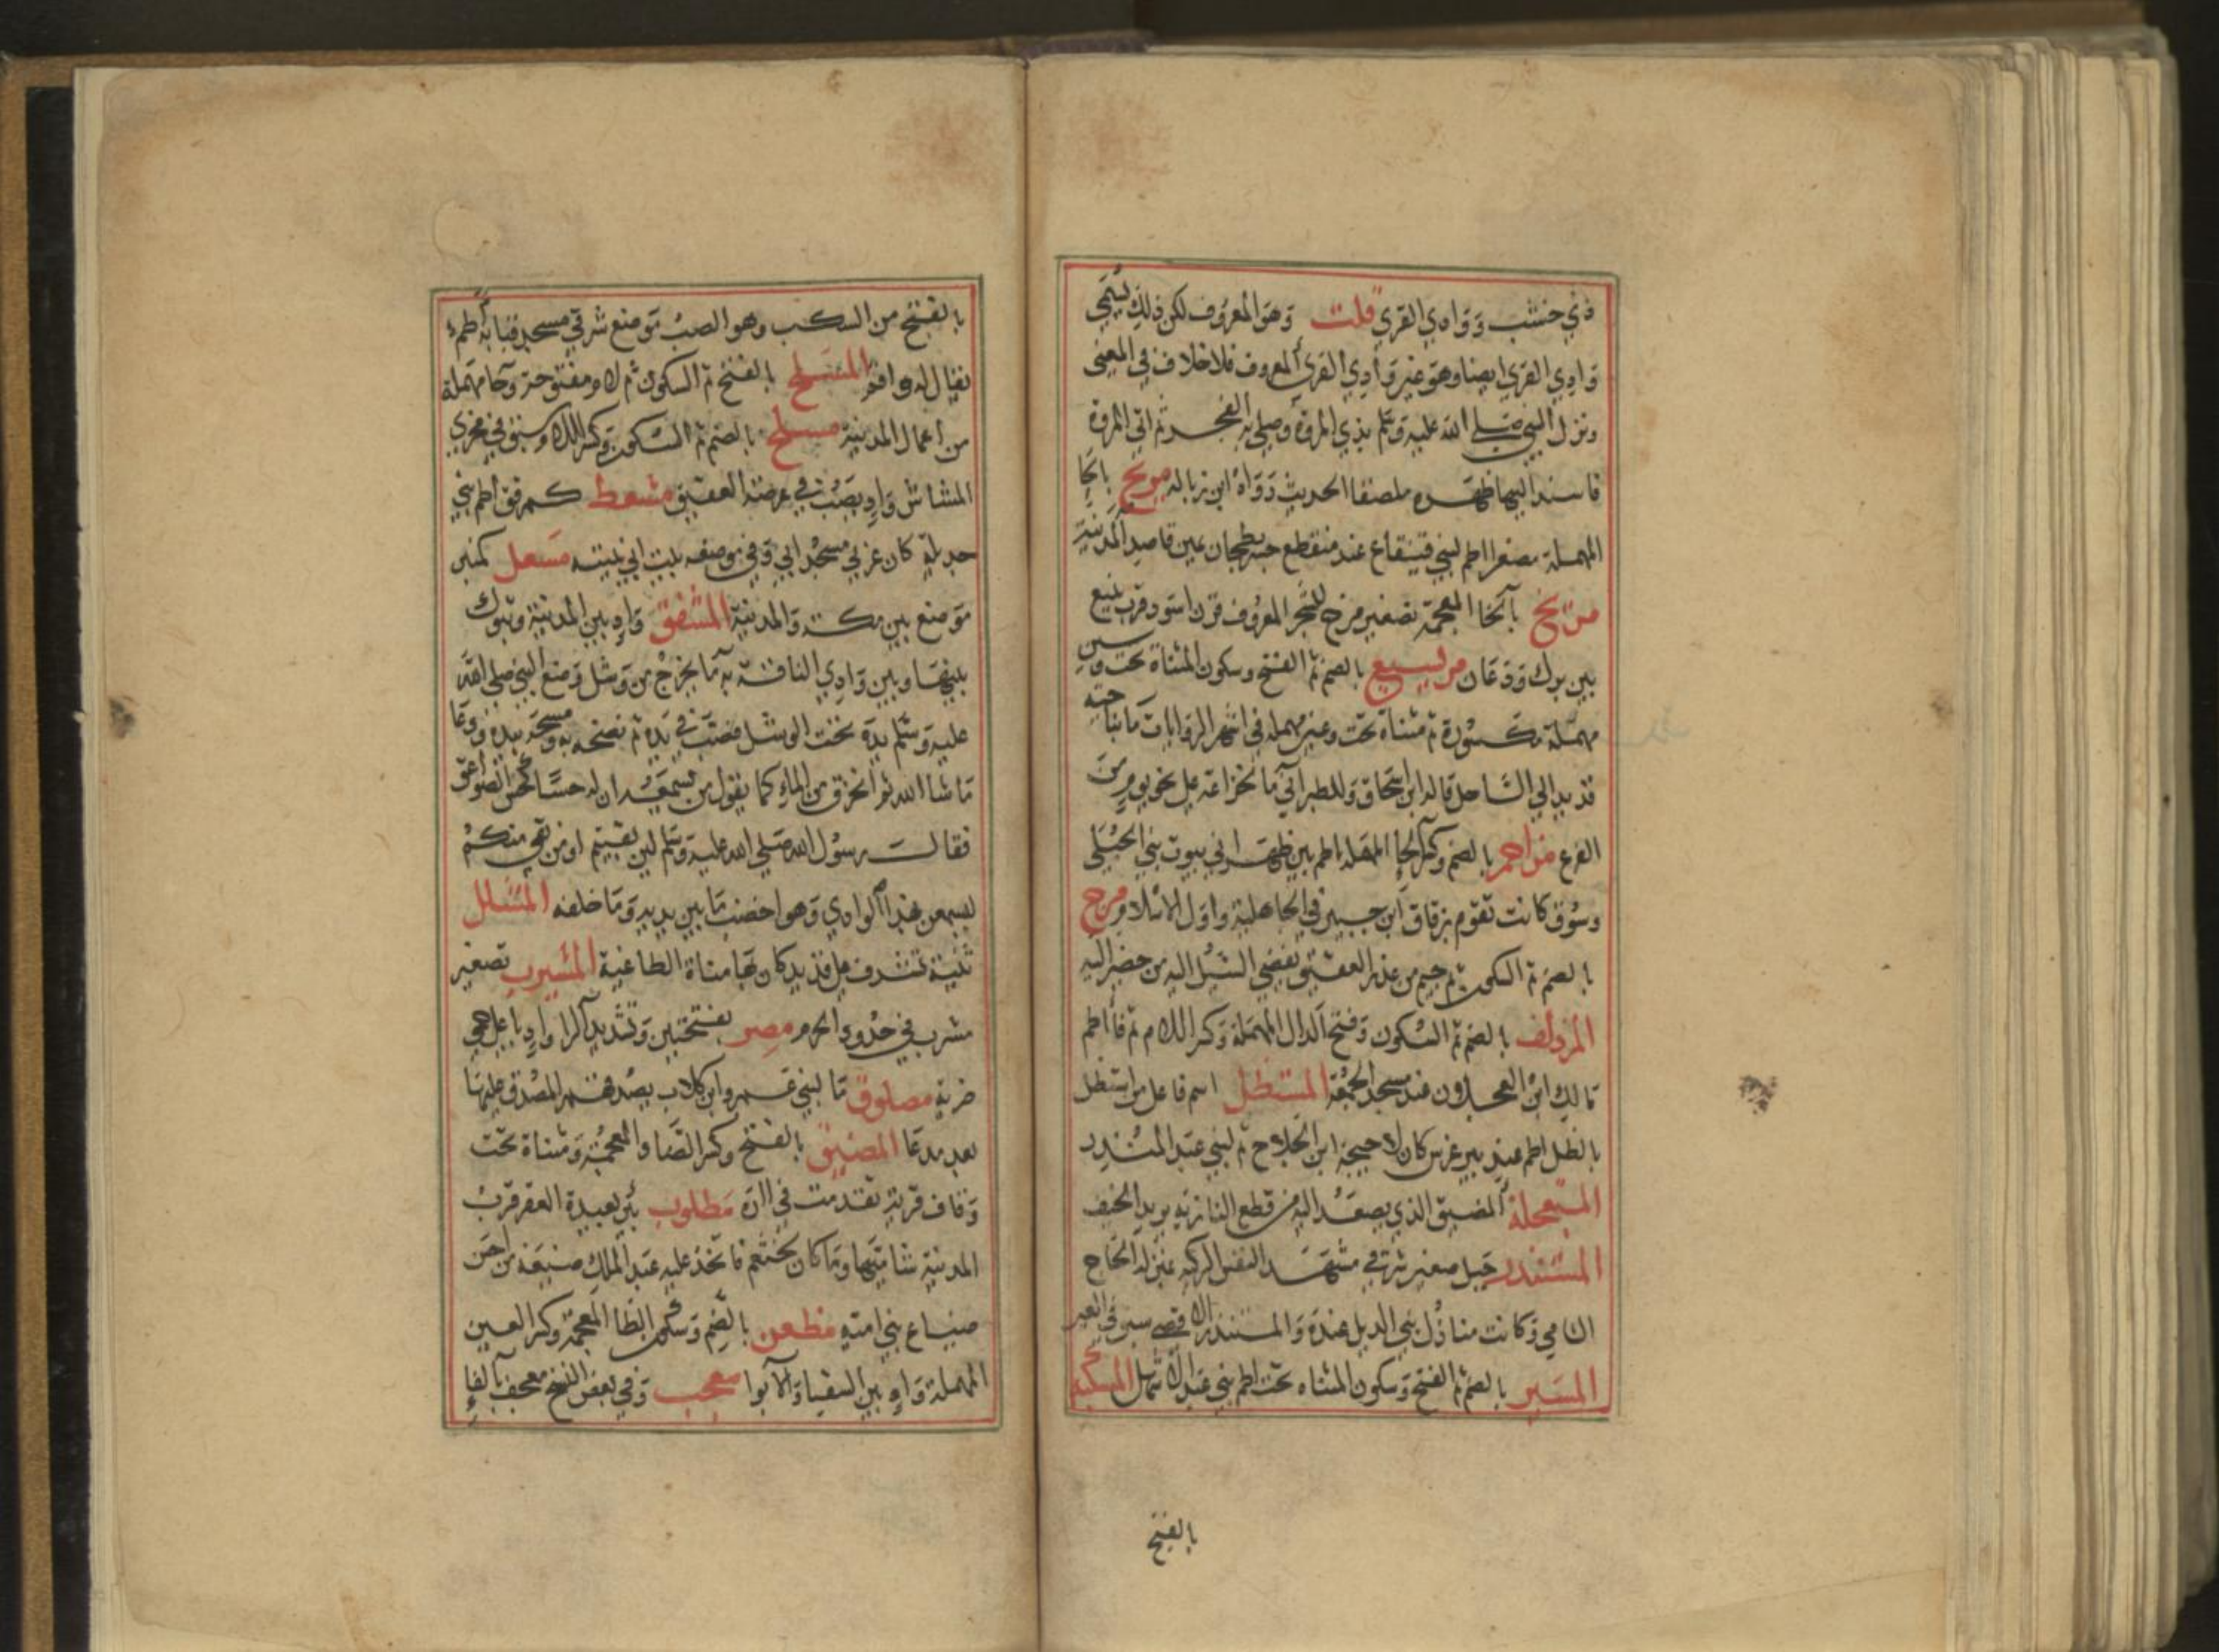 ذي خشب ووادي القري قلت وهو المعروف لكن ذلك يسمي
وادي القري ايضا وهو غير وادي القري المعروف فلا خلاف في المعنى
ونزل النبي صلى الله عليه وسلم بذي المروة وصلي به الفجر ثم اتي المروة
فاسند اليها ظهره ملصقا الحديث رواه ابن زباله مريح بالحا
المهملة مصغرا اطم لبني قينقاع عند منقطع جسر بطحان عين قاصد المدينة
مريخ بالخا المعجمة تصغير مرخ للشجر المعروف قرن اسود قرب ينبع
بين برك وودعان مريسيع بالضم ثم الفتح وسكون المثناة تحت وسين
مهملة مكسورة ثم مثناة تحت وعين مهملة في اشهر الروايات ما بناحية
قديد الي الساحل قاله ابن اسحاق وللطبراني ما لخزاعة على نحو يوم من
الفرع مزاحم بالضم وكسر الحا المهملة اطم بين ظهراني بيوت بني الحبلي
وسوق كانت تقوم بزقاق ابن حبين في الجاهلية واول الاسلام مزج
بالضم ثم السكون ثم جيم من غدر العقيق يفضي السيل اليه من حضير اليه
المزدلف بالضم ثم السكون وفتح الدال المهملة وكسر اللام ثم فا اطم
مالك ابن العجلان عند مسجد الجمعة المستظل اسم فاعل من استظل
بالظل اطم عند بير غرس كان لاحيحة ابن الجلاح ثم لبني عبد المنذر
المستعجلة المضيق الذي يصعد اليه من قطع النازية يريد الخيف
المستندر جبل صغير شرقي مشهد النفس الزكية عنزلة الحاج
الشامي وكانت منازل بني الديل عنده والمستندر الاقصي سير في العير
المسير بالضم ثم الفتح وسكون المثناه تحت اطم بني عبد الاشهل المسكبة
بالفتح
بالفتح من السكب وهو الصب موضع شرقي مسجد قبا به اطم
يقال له واقم المسلح بالفتح ثم السكون ثم لام مفتوحة وحا مهملة
من اعمال المدينة مسلح بالضم ثم السكون وكسر اللام وسبق في مخري
المشاش واد يصب في عرصة العقيق مشعط كمرفق اطم بني
حديلة كان غربي مسجد ابي وفي موضعه بيت ابي نبيته مشعل كمنبر
موضع بين مكة والمدينة المشقق واد بين المدينة وتبوك
بينها وبين وادي الناقة به ما يخرج من وشل وضع النبي صلى الله
عليه وسلم يده تحت الوشل فصب في يده ثم نضحه به ومسحه بيده ودعا
ما شا الله فانخرق من الماء كما يقول من سمعه ان له حسا كحس الصواعق
فقال رسول الله صلى الله عليه وسلم لين بقيتم او من بقي منكم
ليسمعن بهذا الوادي وهو اخصب ما بين يديه وما خلفه المشلل
ثنية تشرف على قديد كان بها مناة الطاغية المشيرب تصغير
مشرب في حدود الحرم مصر بفتحتين وتشديد الرا واد باعلى حمي
ضرية مصلوق ما لبني عمرو ابن كلاب يصدقهم المصدق عليها
بعد مدعا المضيق بالفتح وكسر الضاد المعجمة ومثناة تحت
وقاف قرية تقدمت في ارة مطلوب بئر بعيدة القعر قرب
المدينة شاميها وما كان لخثعم فاتخذ عليه عبد الملك ضيعة من احسن
ضياع بني امية مظعن بالضم وسكون الظا المعجمة وكسر العين
المهملة واد بين السقيا والابوا معجب وفي بعض النسخ معجف بالفاء